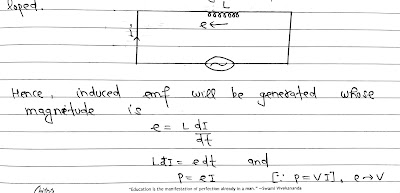 loped.
L
e ←
i
Hence, induced emf will be generated whose
magnitude is
e = L dI/dt
LdI = edt and
P = eI [∵ P = VI], e→V
"Education is the manifestation of perfection already in a man." —Swami Vivekananda